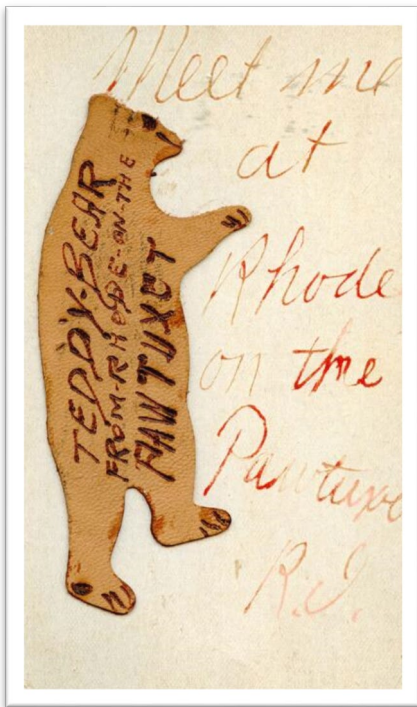 Meet me
at
Rhode
on the
Pawtuxe
R.I.
TEDDY-BEAR
FROM-RHODE-ON-THE
PAWTUXET